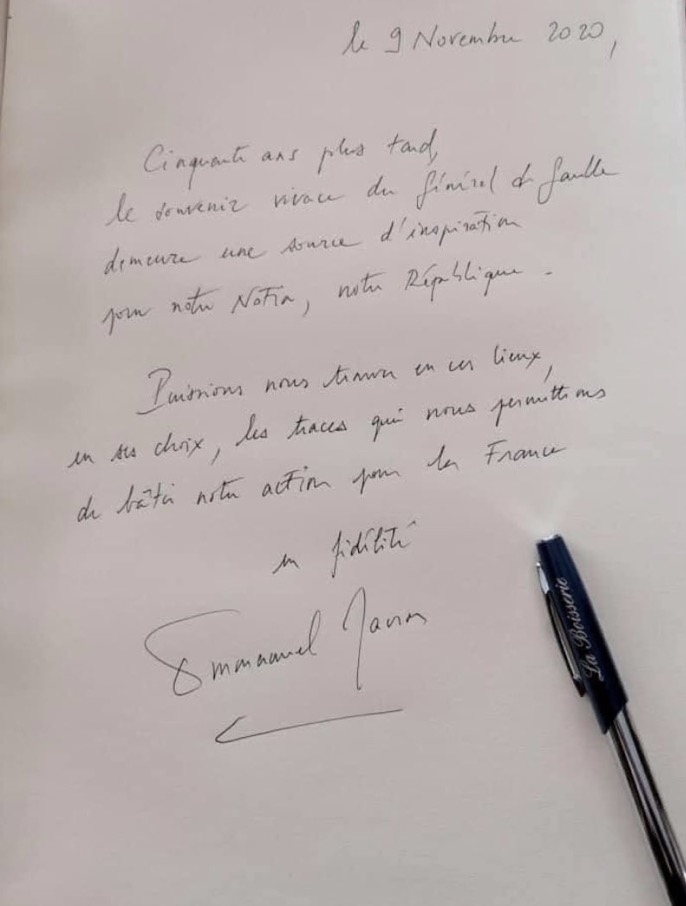 le 9 Novembre 2020,
Cinquante ans plus tard,
le souvenir vivace du Général de Gaulle
demeure une source d'inspiration
pour notre Nation, notre République.
Puissions nous trouver en ces lieux,
en ses choix, les traces qui nous permettions
de bâtir notre action pour la France
en fidélité
Emmanuel Macron
La Boisserie